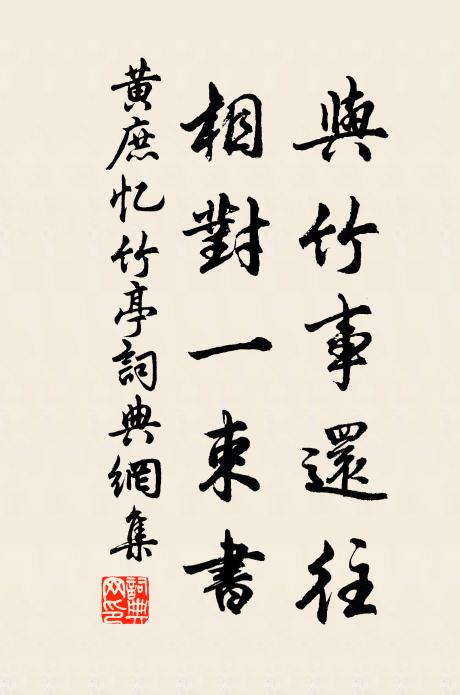 與竹事還往
相對一束書
黃庶忆竹亭詞典網集
詞典网印